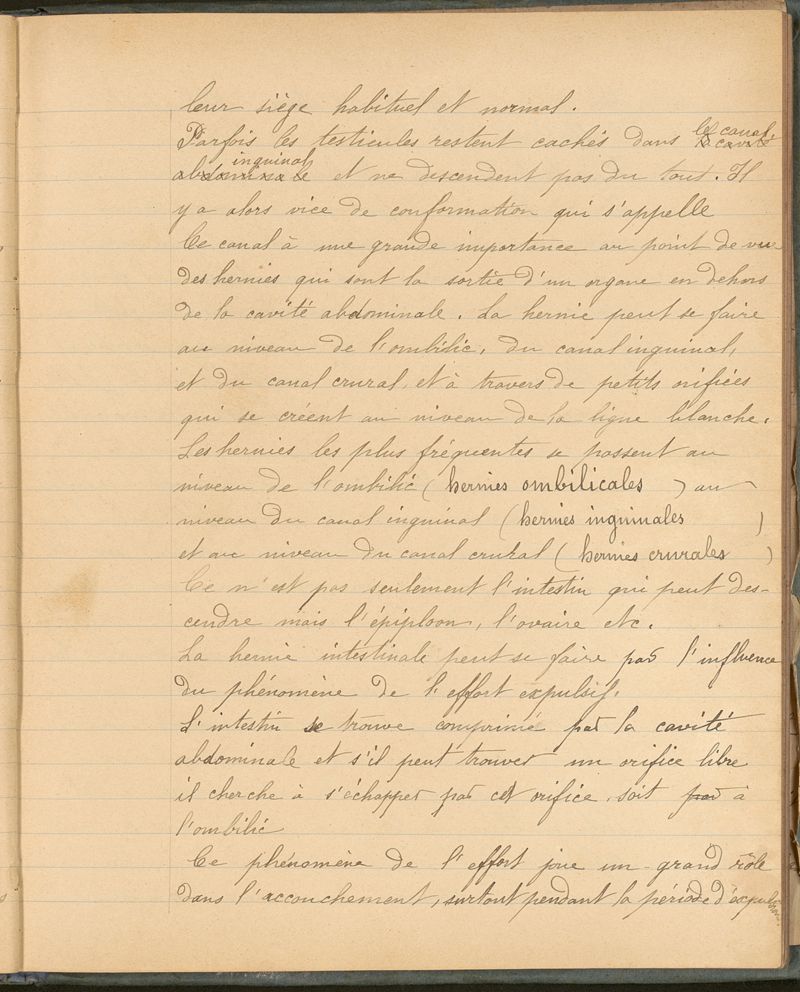 leur siège habituel et normal.
Parfois les testicules restent cachés dans le canal la cavité
inguinal
abdominale et ne descendent pas du tout. Il
y a alors vice de conformation qui s'appelle
Ce canal à une grande importance au point de vue
des hernies qui sont la sortie d'un organe en dehors
de la cavité abdominale. La hernie peut se faire
au niveau de l'ombilic, du canal inguinal,
et du canal crural, et à travers de petits orifices
qui se créent au niveau de la ligne blanche.
Les hernies les plus fréquentes se passent au
niveau de l'ombilic (hernies ombilicales) au
niveau du canal inguinal (hernies inguinales)
et au niveau du canal crural (hernies crurales)
Ce n'est pas seulement l'intestin qui peut des-
cendre mais l'épiploon, l'ovaire etc.
La hernie intestinale peut se faire par l'influence
du phénomène de l'effort expulsif.
L'intestin se trouve comprimé par la cavité
abdominale et s'il peut trouver un orifice libre
il cherche à s'échapper par cet orifice, soit par à
l'ombilic
Ce phénomène de l'effort joue un grand rôle
dans l'accouchement, surtout pendant la période d'expulsion.